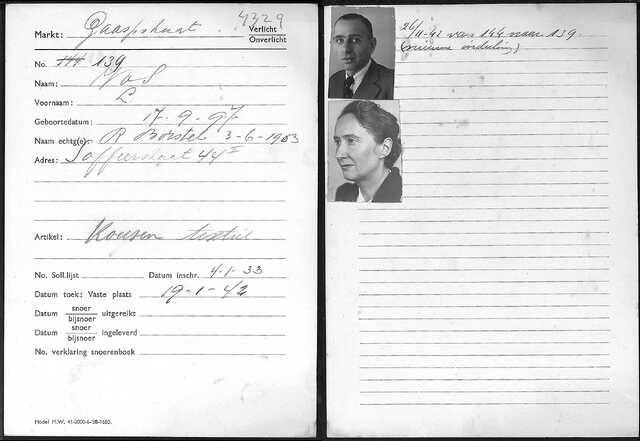 4329
Markt: Gaaspstraat. Verlicht
Onverlicht
No. 144 139
Naam: Vos
Voornaam: L.
Geboortedatum: 17-9-97
Naam echtg(e): R Borstel 3-6-1903
Adres: Saffierstraat 44 I
Artikel: Kousen textiel
No. Soll.lijst Datum inschr. 4-1-33
Datum toek: Vaste plaats 19-1-42
Datum snoer uitgereikt
bijsnoer
Datum snoer ingeleverd
bijsnoer
No. verklaring snoerenboek
Model M.W. 41-2000-6-'38-1660.
26/11-42 van 144 naar 139.
(nieuwe indeling)